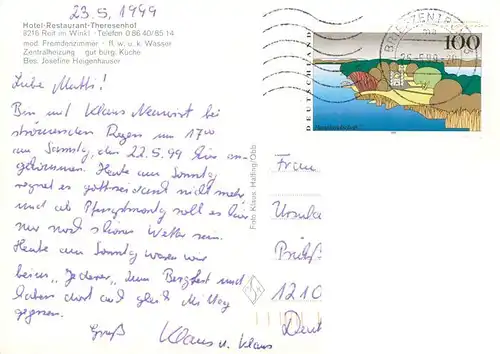 23.5.1999
Hotel-Restaurant-Theresenhof
8216 Reit im Winkl · Telefon 0 86 40/85 14
mod. Fremdenzimmer · fl. w. u. k. Wasser
Zentralheizung · gut bürg. Küche
Bes. Josefine Heigenhauser
Liebe Mutti!
Bin mit Klaus bei
strömenden Regen um 17⁰⁰
am Samstg, den 22.5.99 hier an-
gekommen. Heute am Sonntg
regnet es gottseidank nicht mehr
und ab Pfingstmontg soll es hier
nur noch schönes Wetter sein.
Heute am Sonntg waren wir
beim "Jederer" zum Bergfest und
haben dort auch gleich Mittag
gegessen.
Gruß Klaus u. Klaus
Foto Klaus, Halfing/Obb
DEUTSCHLAND
100
BRIEFZENTRUM
Frau
Ursula
1210